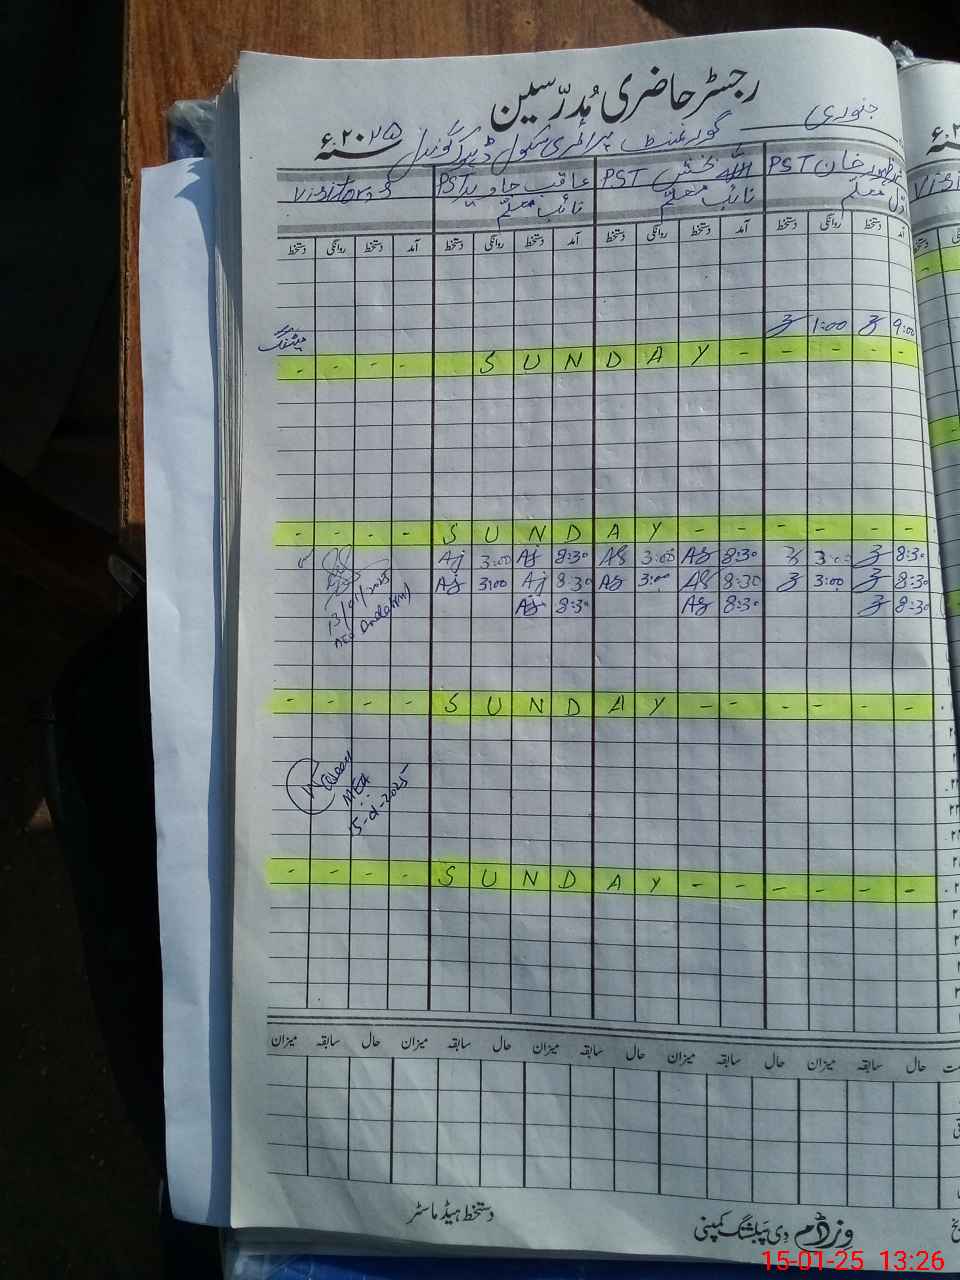 رجسٹر حاضری مُدرّسین
جنوری
گورنمنٹ پرائمری سکول
سنہ ۲۰۲۵ء
ظہور خان PST اللہ بخش PST عاقب جاوید PST Visitor,s
اوّل معلّم نائب معلّم نائب معلّم
آمد دستخط روانگی دستخط آمد دستخط روانگی دستخط آمد دستخط روانگی دستخط آمد دستخط روانگی دستخط
1:00 9:00
میٹنگ
- - - - S U N D A Y - - - - -
- - - - S U N D A Y - - - - - -
Aj 3:00 Aj 8:30 AB 3:00 AB 8:30 3:00 8:30
Aj 3:00 Aj 8:30 AB 3:00 AB 8:30 3:00 8:30
Aj 8:30 AB 8:30 8:30
13/01/2025
AEO
- - - - S U N D A Y - - - - - -
MEA
15-01-2025
- - - - S U N D A Y - - - - - -
حال سابقہ میزان حال سابقہ میزان حال سابقہ میزان حال سابقہ میزان حال سابقہ میزان
دستخط ہیڈ ماسٹر
وزڈم دی پبلشنگ کمپنی
15-01-25 13:26